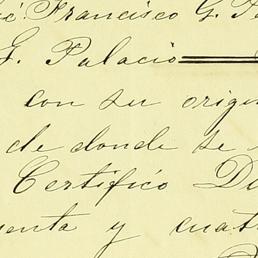 Francisco G. P
G. Palacio
con su origen
de donde se
Certifico D
enta y cuat